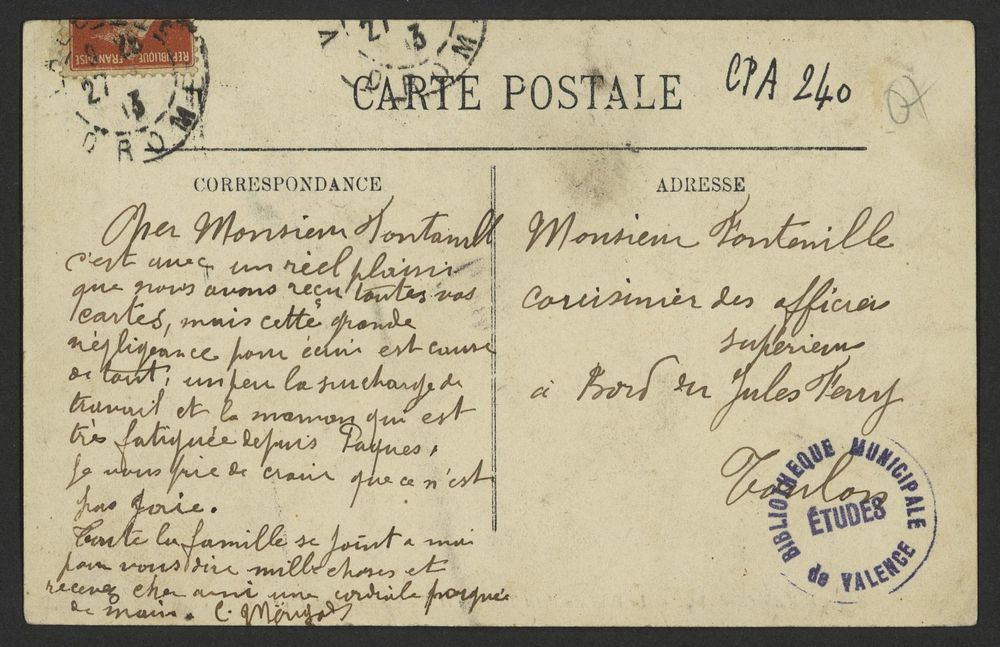 REPUBLIQUE FRANÇAISE
27
13
DROME
27
13
DROM
CARTE POSTALE
CPA 240
CORRESPONDANCE
ADRESSE
Cher Monsieur
c'est avec un réel plaisir
que nous avons reçu toutes vos
cartes, mais cette grande
négligeance pour écrire est cause
de tout, un peu la surcharge de
travail et la maman qui est
très fatiguée depuis Paques,
je vous prie de croire que ce n'est
pas
Toute la famille se joint a moi
pour vous dire mille choses et
recevez cher ami une cordiale poignée
de main. C.
Monsieur Fontenille
couisinier des officiers
superieurs
à Bord du Jules Ferry
Toulon
BIBLIOTHEQUE MUNICIPALE
ÉTUDES
de VALENCE